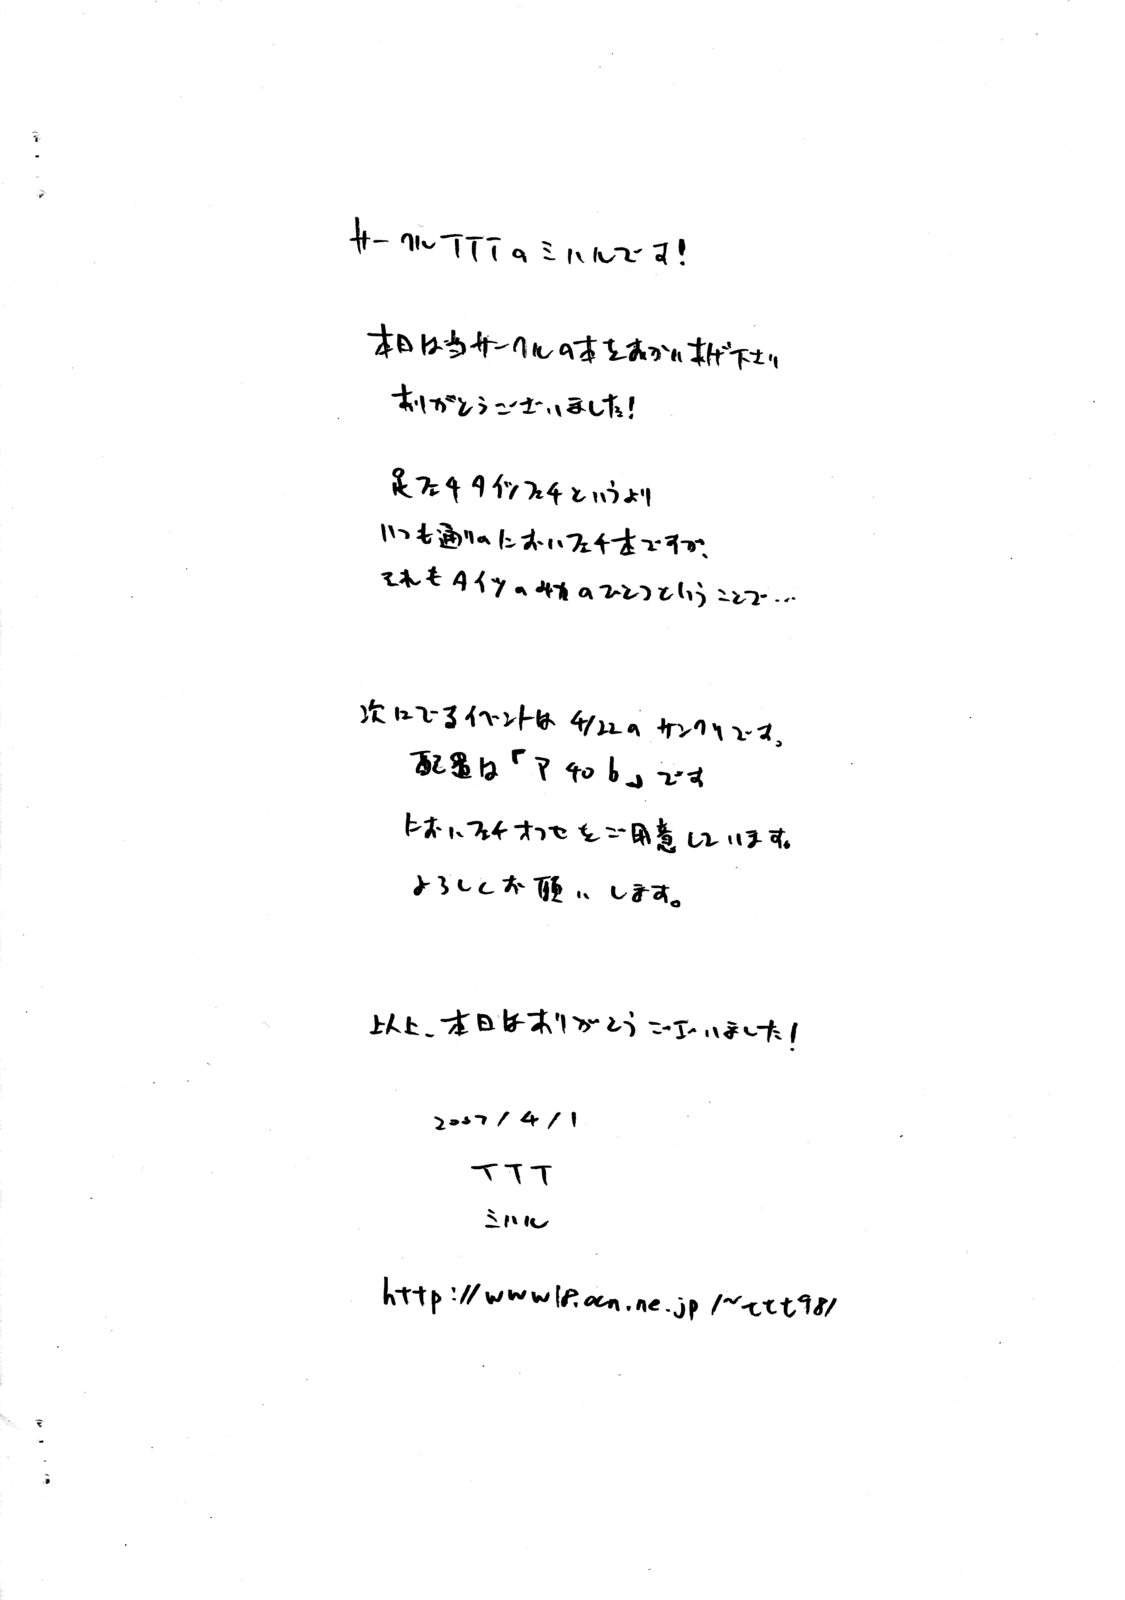 サークルTTTのミハルです！
本日は当サークルの本をおかい上げ下さり
ありがとうございました！
足フェチタイツフェチというより
いつも通りのにおいフェチ本ですが、
それもタイツの魅力のひとつということで…
次にでるイベントは4/22のサンクリです。
配置は「ア40b」です
においフェチオフセをご用意しています。
よろしくお願いします。
以上、本日はありがとうございました！
2007/4/1
TTT
ミハル
http://www18.ocn.ne.jp/~ttt98/